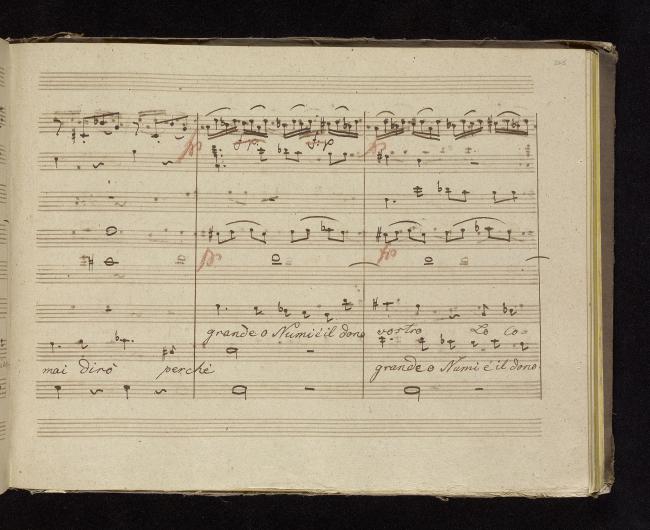 fp f.p f.p fp
fp fp
grande o Numi è il dono vostro Lo Co=
mai dirò perché grande o Numi è il dono